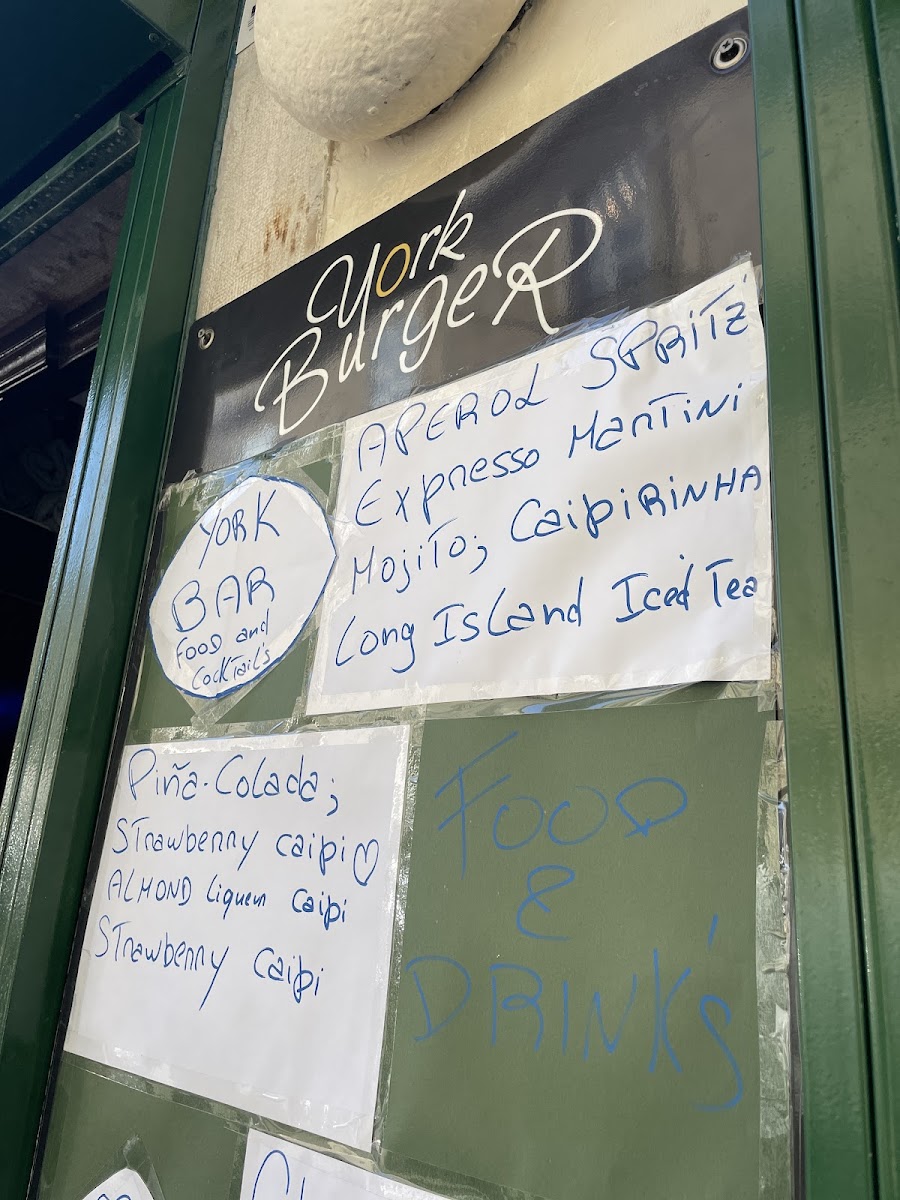 York
BurgeR
APEROL SPRITZ
Expresso MarTini
MojiTo; CaipiRiNHA
Long IsLand Iced Tea
YORK
BAR
FOOD and
COCKTail's
Piña-Colada;
STrawberry caipi♡
ALMOND Liquer caipi
STrawberry caipi
FOOD
&
DRINK'S